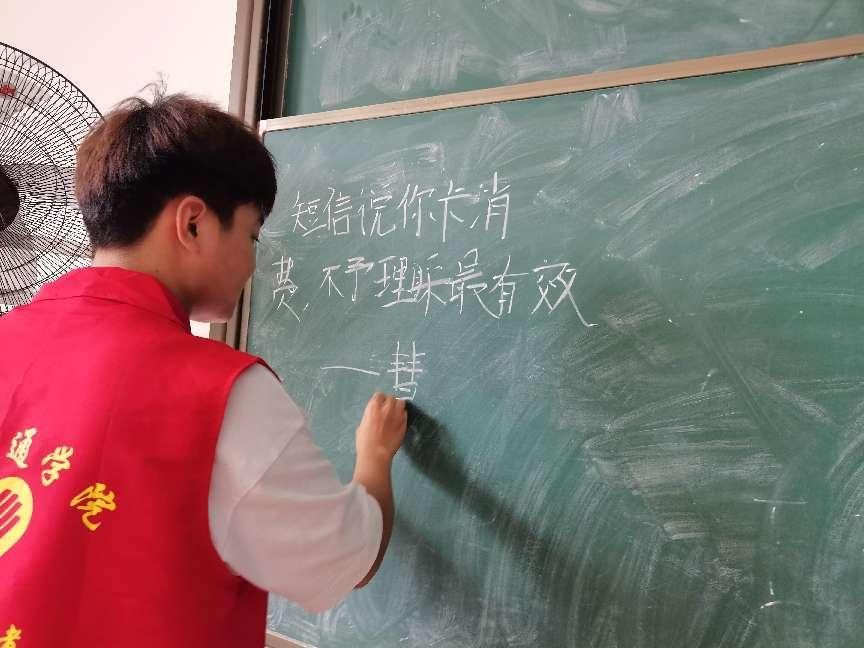 短信说你卡消
费,不予理睬最有效
一彗
通学院
者